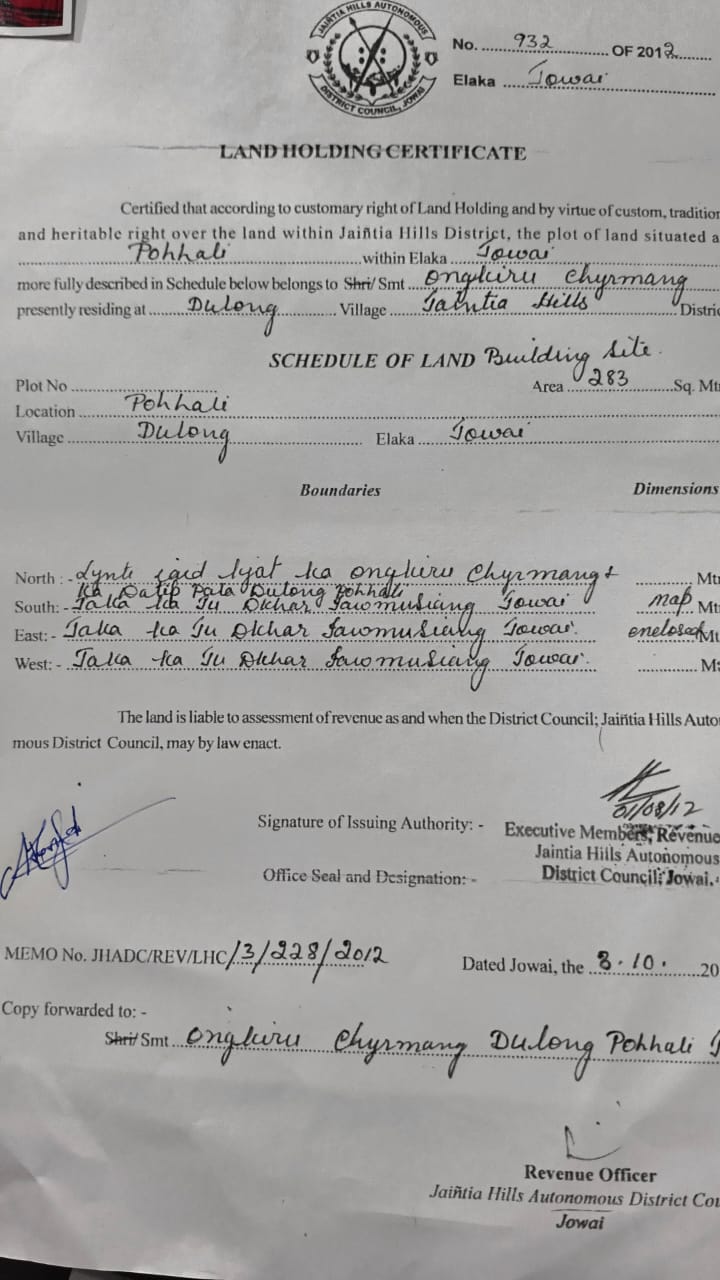 JAINTIA HILLS AUTONOMOUS
DISTRICT COUNCIL, JOWAI
No. 932 OF 2012
Elaka Jowai
LAND HOLDING CERTIFICATE
Certified that according to customary right of Land Holding and by virtue of custom, tradition
and heritable right over the land within Jaiñtia Hills District, the plot of land situated a
Pohhali within Elaka Jowai
more fully described in Schedule below belongs to Shri/ Smt Ongkiru Chyrmang
presently residing at Dulong Village Jaintia Hills Distric
SCHEDULE OF LAND Building Site.
Plot No Area 283 Sq. Mt
Location Pohhali
Village Dulong Elaka Jowai
Boundaries Dimensions
North : - Lynti iaid kjat ka Ongkiru Chyrmang & Mt
Ka Datip Pala Dulong Pohhali
South: - Jaka ka Ju Dkhar Iawmusiang Jowai map Mt
East: - Jaka ka Ju Dkhar Iawmusiang Jowai. enclosed Mt
West: - Jaka ka Ju Dkhar Iawmusiang Jowai. M
The land is liable to assessment of revenue as and when the District Council; Jaiñtia Hills Auto
mous District Council, may by law enact.
01/08/12
Signature of Issuing Authority: - Executive Members, Revenue
Jaintia Hills Autonomous
Office Seal and Designation: - District Council, Jowai.
MEMO No. JHADC/REV/LHC/3/228/2012 Dated Jowai, the 3.10. 20
Copy forwarded to: -
Shri/ Smt Ongkiru Chyrmang Dulong Pohhali J
Revenue Officer
Jaiñtia Hills Autonomous District Cou
Jowai